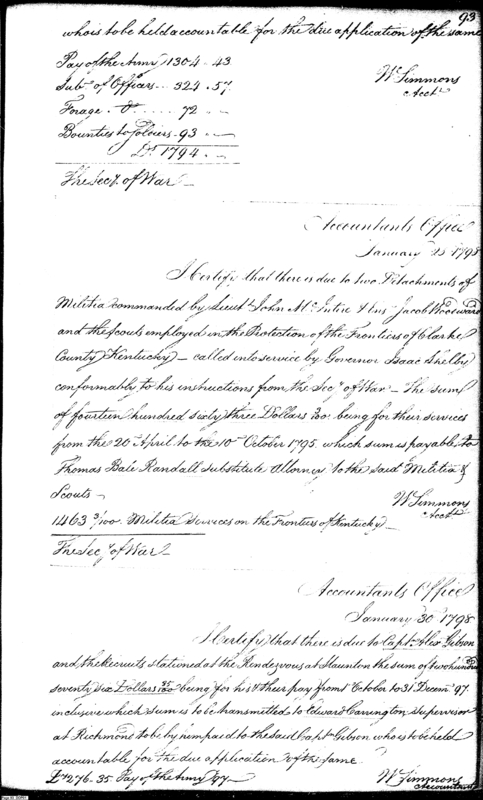 93
who is to be held accountable for the due application of the same
Pay of the Army 1304.43
Subs. of Officers... 324.57
Forage. Do...... 72 . —
Bounties to Soldiers. 93 . —
Ds. 1794 . —
W. Simmons
Acct.
The Secy. of War —
Accountants Office
January 1798
I Certify that there is due to two Detachments of
Militia commanded by Lieut. John McIntire & Ens. Jacob Woodward
and the Scouts employed in the Protection of the Frontiers of Clarke
County Kentucky — called into service by Governor Isaac Shelby
conformably to his instructions from the Secy. of War — The sum
of fourteen hundred sixty three Dollars 3/100. being for their services
from the 26th April to the 10th October 1795. which sum is payable to
Thomas Bale Randall substitute Attorney to the said Militia &
Scouts —
W Simmons
Acct.
1463 3/100. Militia Services on the Frontiers of Kentucky —
The Secy. of War —
Accountants Office
January 30th 1798
I Certify that there is due to Capt. Alex Gibson
and the Recruits stationed at the Rendezvous at Staunton the sum of two hundred
seventy six Dollars 35/100 being for his & their pay from 1 October to 31 Decem. 97.
inclusive which sum is to be transmitted to Edward Carrington Supervisor
at Richmond to be by him paid to the said Capt. Gibson who is to be held
accountable for the due application of the same.
Ds 276.35 Pay of the Army 97.
W Simmons
Accountant